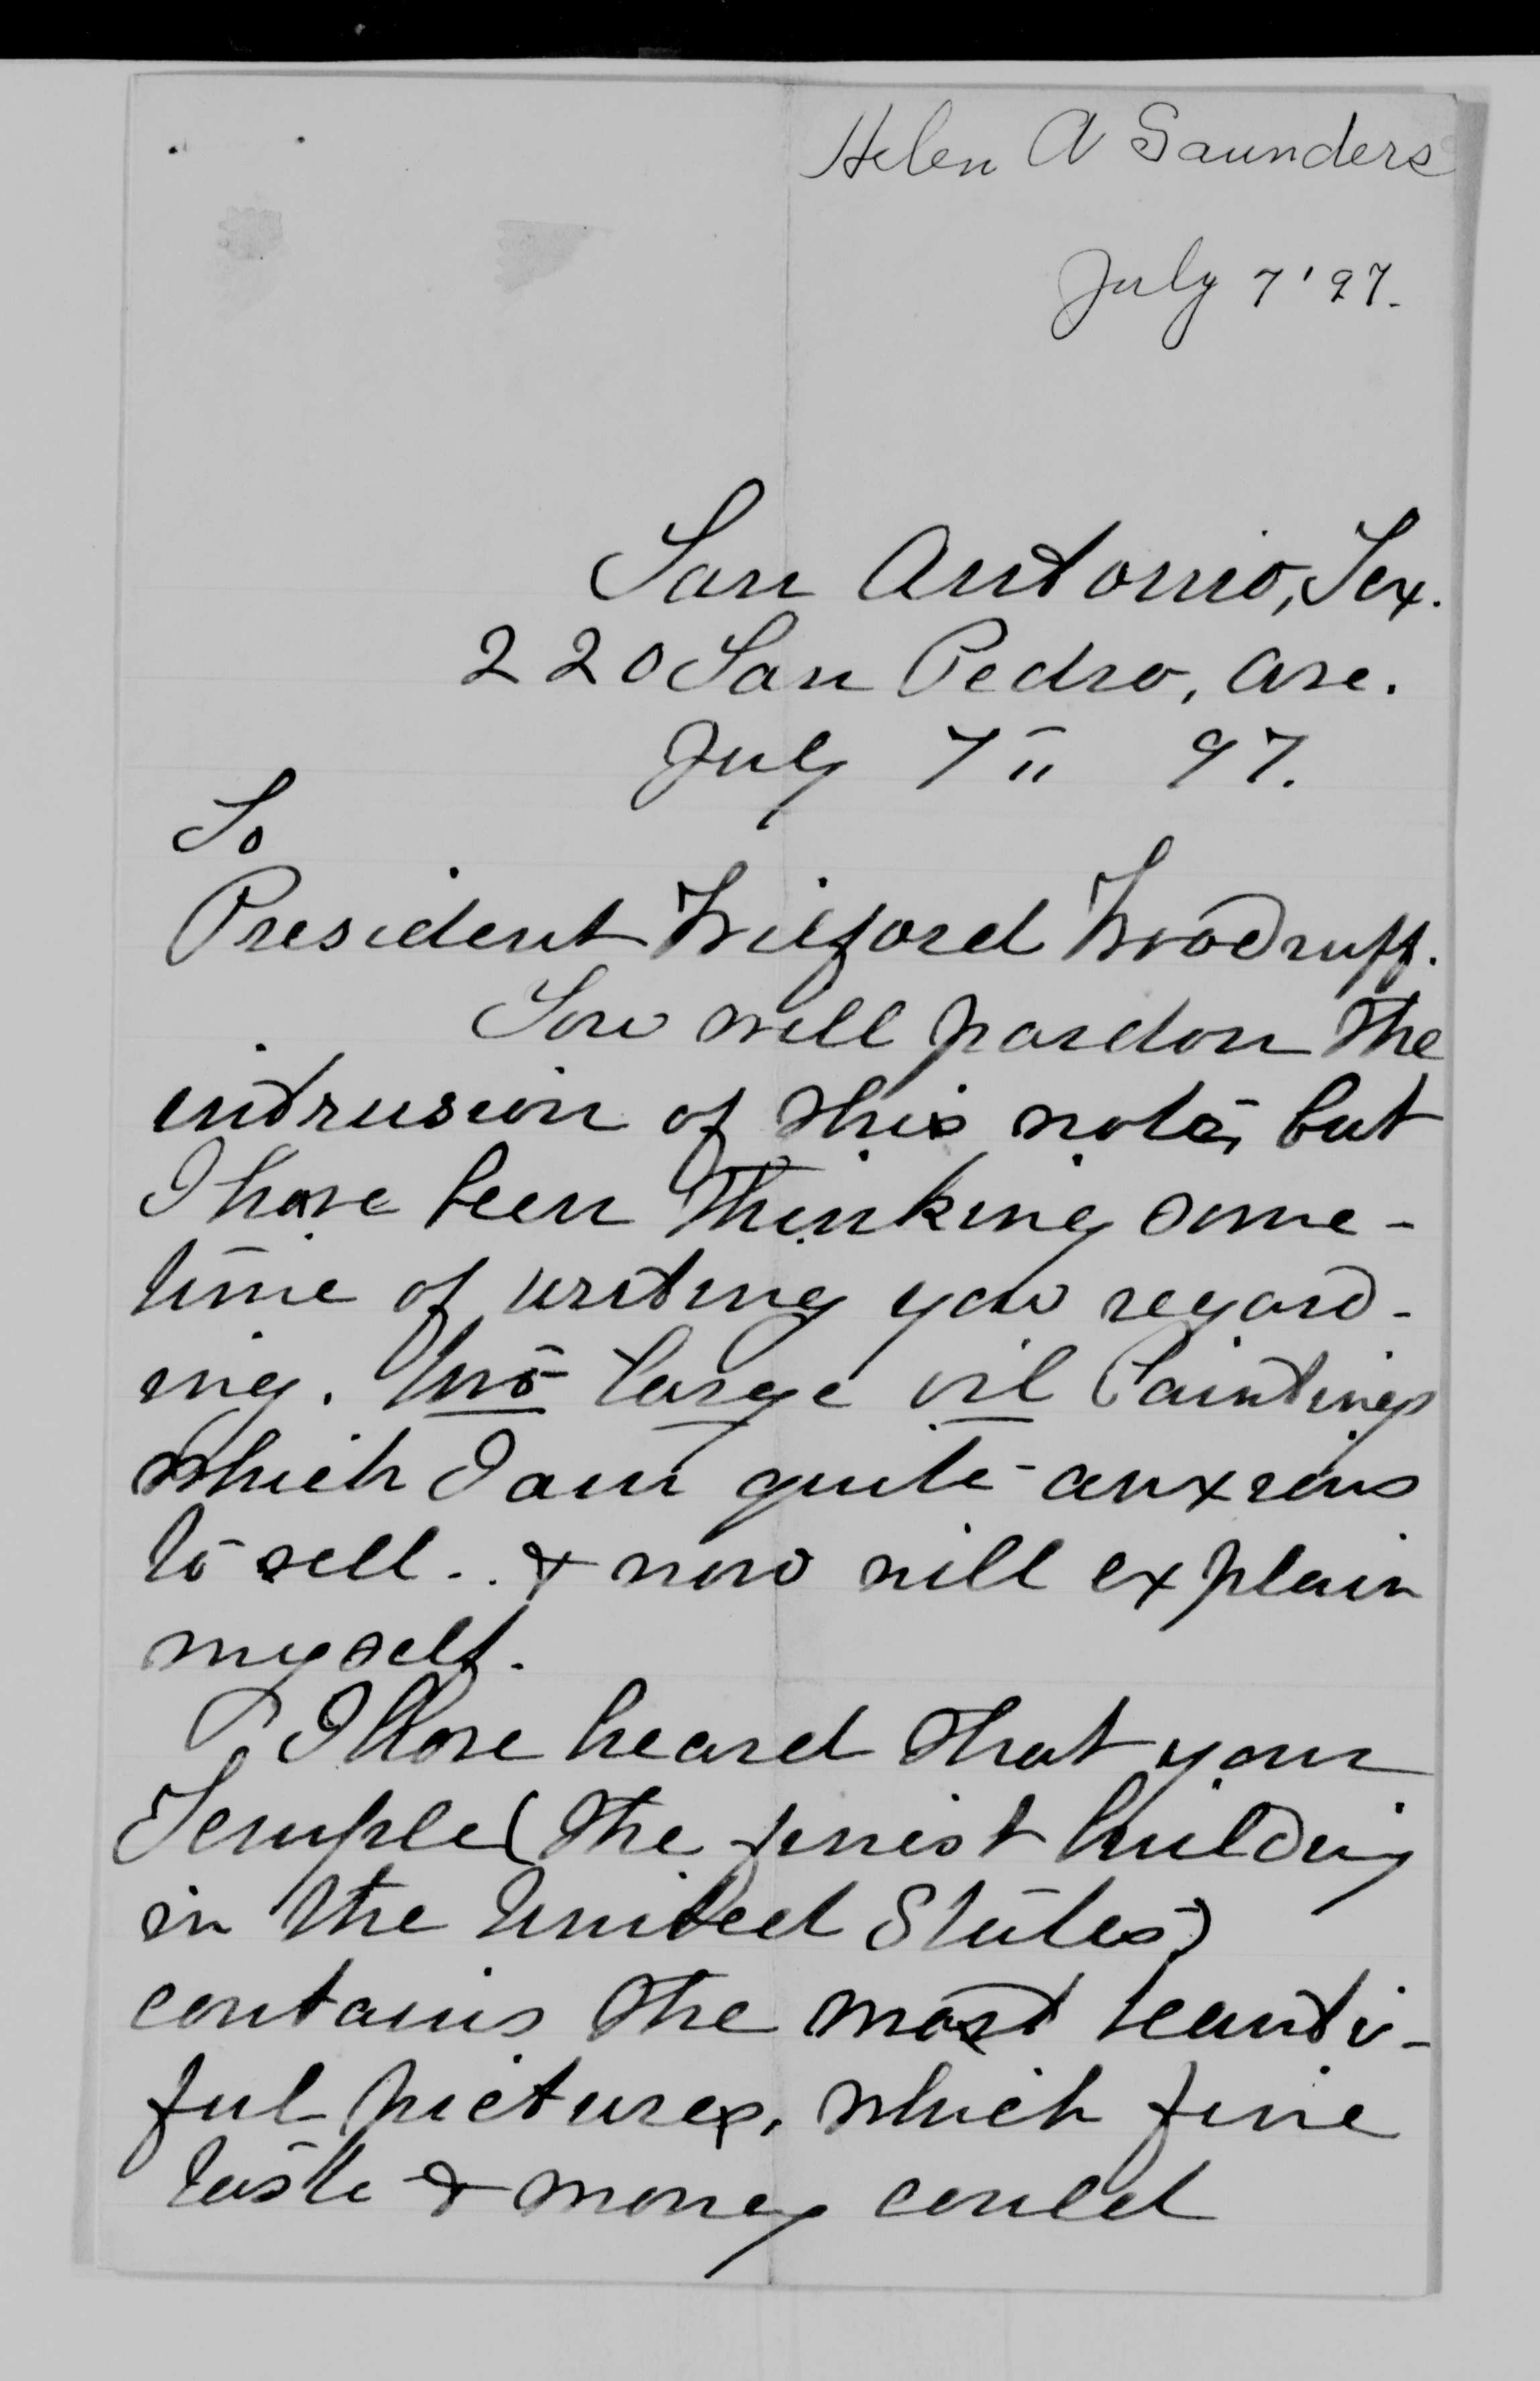 Helen A Saunders
July 7 '97.
San Antonio, Tex.
220 San Pedro, Ave.
July 7" 97.
To
President Wilford Woodruff.
You will pardon the
intrusion of this note, but
I have been thinking some-
time of writing you regard-
ing. two large oil Paintings
which I am quite anxious
to sell.. & now will explain
myself.
I Have heard that your
Temple (the finist building
in the United States)
contains the most beauti-
ful pictures, which fine
taste & money could